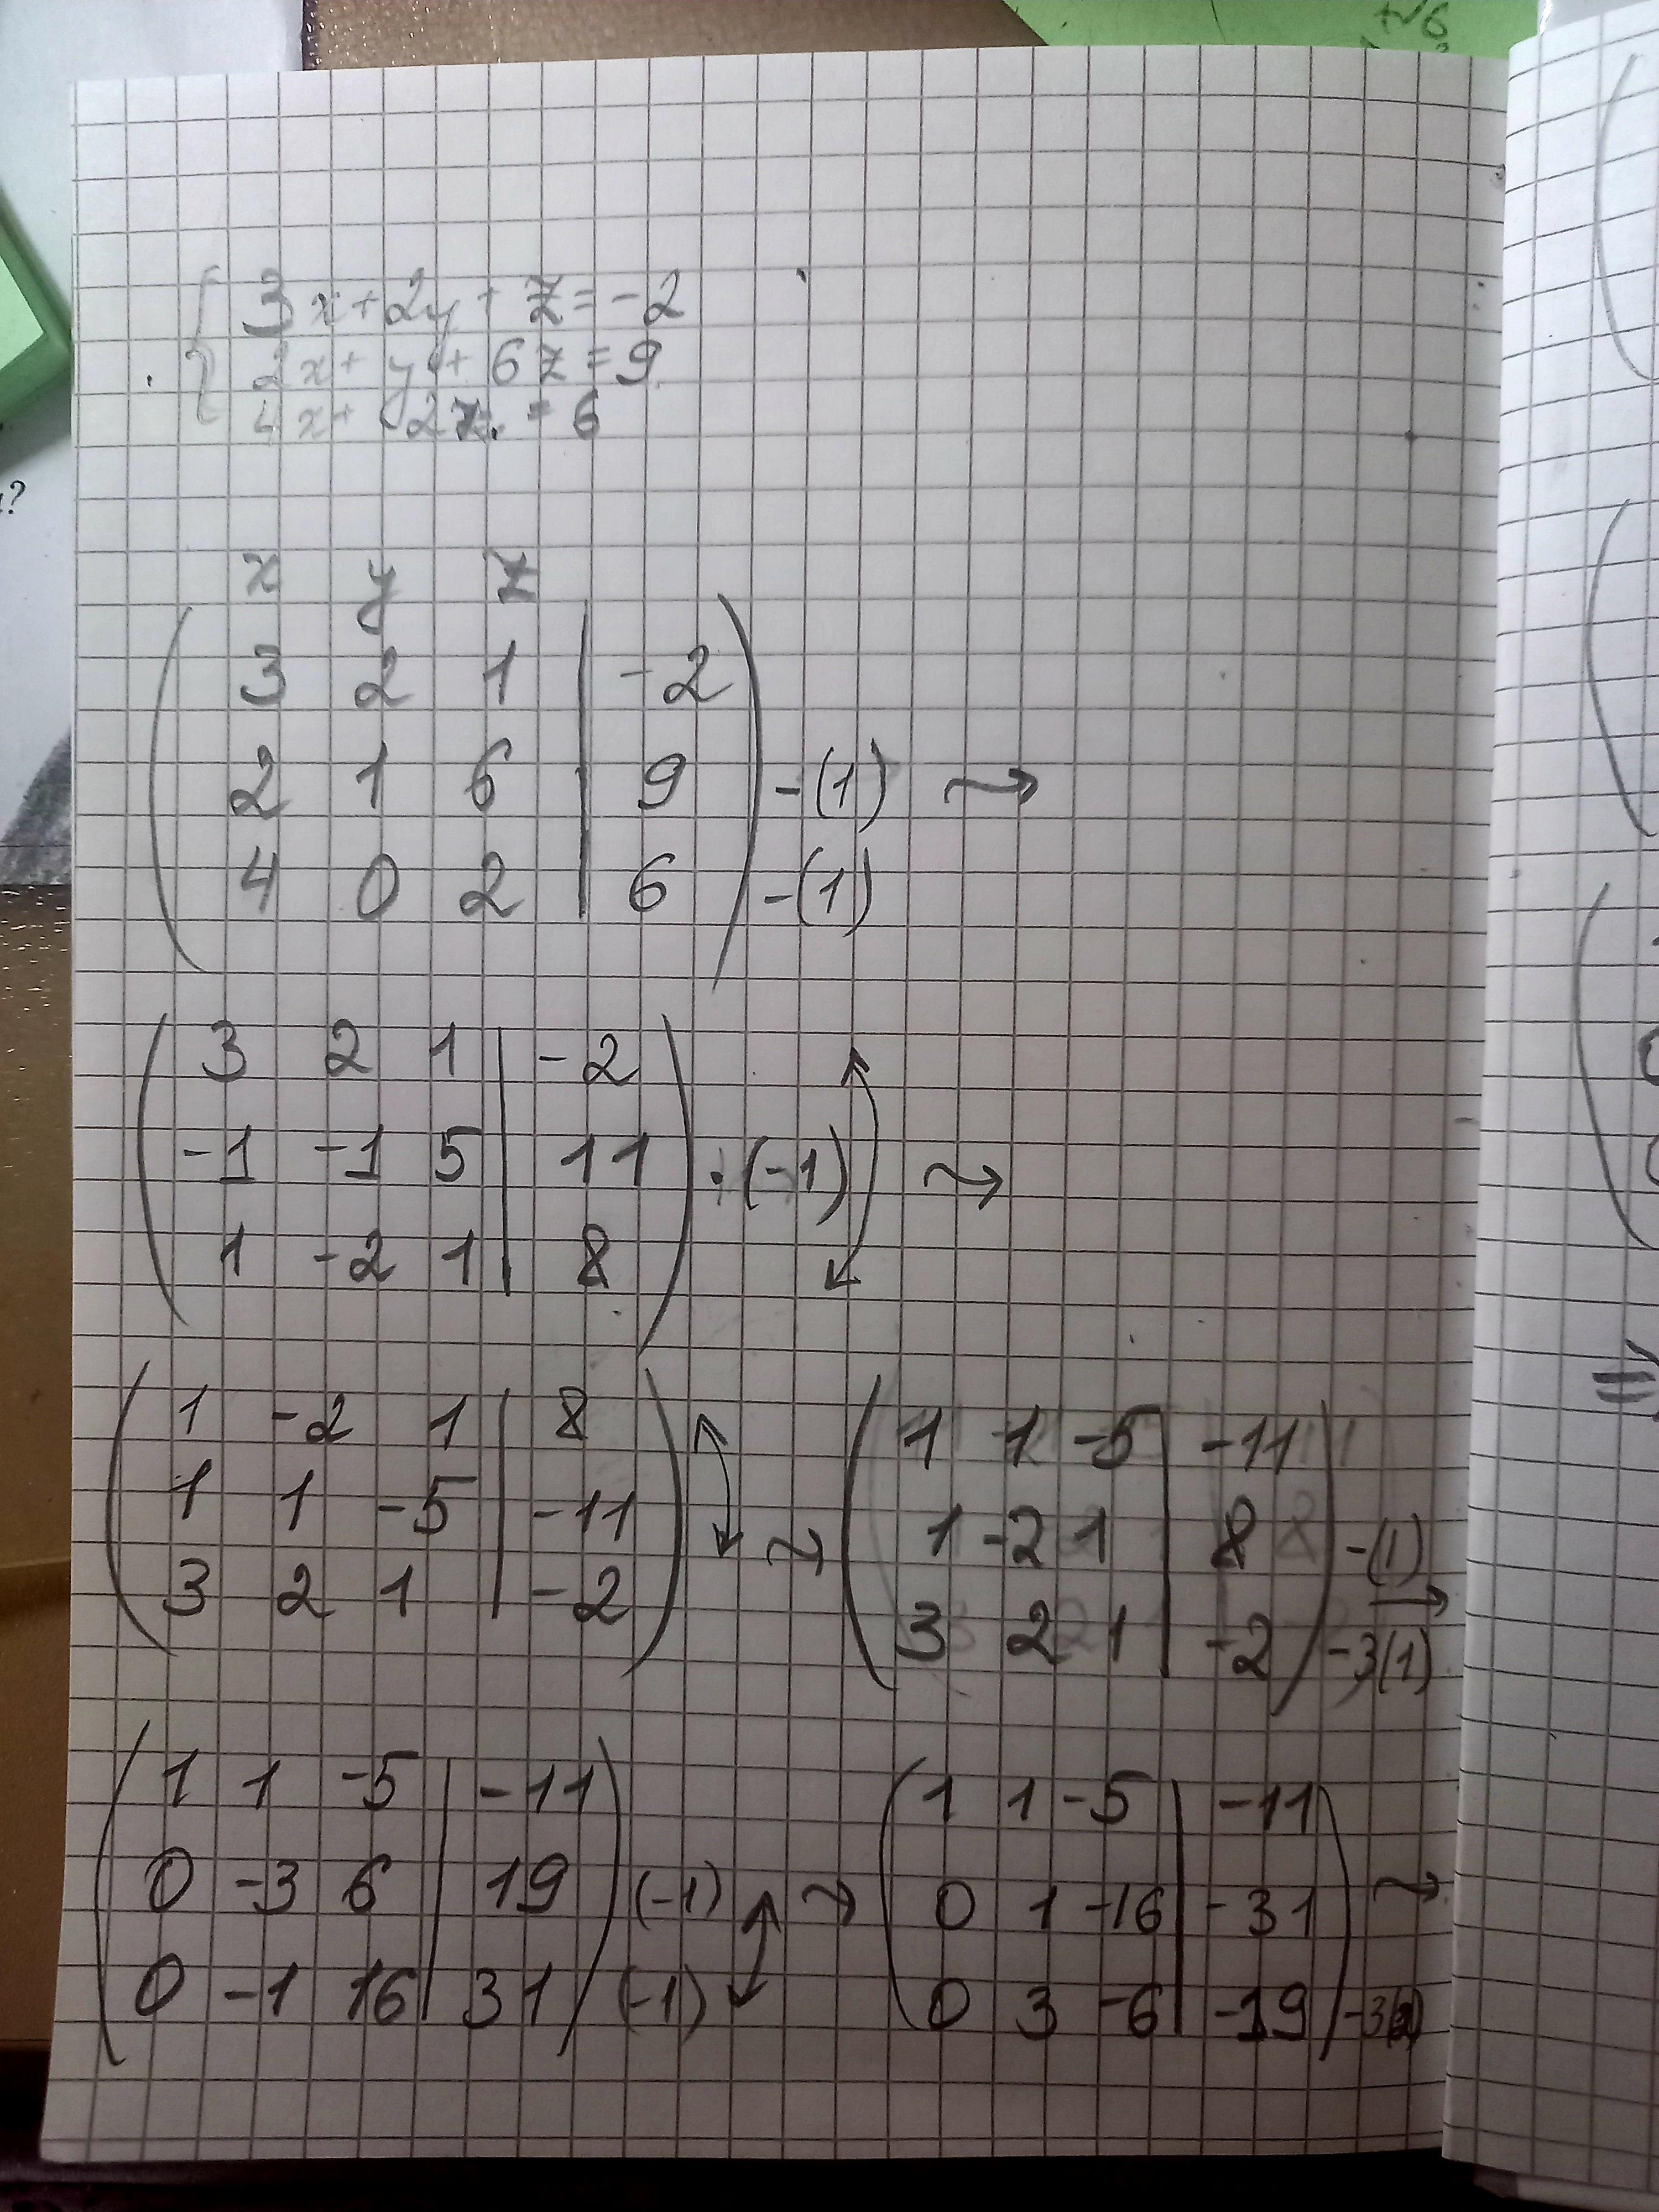 +√6
?
3x+2y+z=-2
2x+y+6z=9
4x+2z=6
x y z
3 2 1 | -2
2 1 6 | 9 -(1) ⇝
4 0 2 | 6 -(1)
3 2 1 | -2
-1 -1 5 | 11 ·(-1) ⇝
1 -2 1 | 8
1 -2 1 | 8
1 1 -5 | -11
3 2 1 | -2
⇝
1 1 -5 | -11
1 -2 1 | 8 -(1)
→
3 2 1 | -2 -3(1)
1 1 -5 | -11
0 -3 6 | 19 (-1)
0 -1 16 | 31 (-1)
⇝
1 1 -5 | -11
0 1 -16 | -31 ⇝
0 3 -6 | -19 -3(2)
⇒